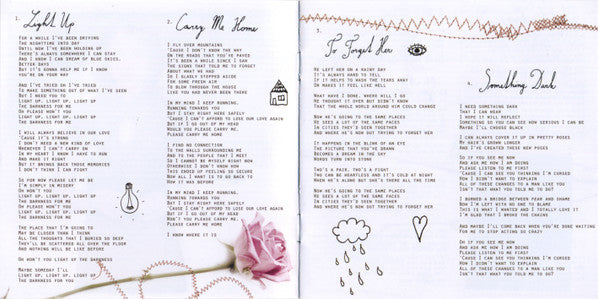 1. Light Up
FOR A WHILE I'VE BEEN DRIVING
THE NIGHTTIME INTO DAY
UNTIL NOW I'VE BEEN HOLDING UP
THERE'S ALWAYS SOMEWHERE I CAN STAY
AND I KNOW I CAN DREAM OF BLUE SKIES,
BETTER DAYS
BUT IT'S GONNA HELP ME IF I KNOW
YOU'RE ON YOUR WAY
AND I'VE TRIED OH I'VE TRIED
TO MAKE SOMETHING OUT OF WHAT I'VE SEEN
BUT I NEED YOU TO
LIGHT UP, LIGHT UP, LIGHT UP
THE DARKNESS FOR ME
LIGHT UP, LIGHT UP, LIGHT UP
THE DARKNESS FOR ME
I WILL ALWAYS BELIEVE IN OUR LOVE
'CAUSE IT'S STRONG
I DON'T NEED A NEW KIND OF LOVE
WHENEVER I CAN'T CARRY ON
IN MY HEART I KNOW I HAVE TO RUN
AND MAKE IT RIGHT
BUT IT BRINGS BACK THESE MEMORIES
I DON'T THINK I CAN FIGHT
SO FOR NOW PLEASE LET ME BE
I'M SIMPLY IN MISERY
OH WON'T YOU
LIGHT UP, LIGHT UP, LIGHT UP
THE DARKNESS FOR ME
OH PLEASE WON'T YOU
LIGHT UP, LIGHT UP, LIGHT UP
THE DARKNESS FOR ME
THE PLACE THAT I'M GOING TO
MAY BE CLOSER THAN I THINK
ALL THE THOUGHTS THAT I BURIED SO DEEP
THEY'LL BE SCATTERED ALL OVER THE FLOOR
AND NOTHING WILL BE LIKE BEFORE
OH WON'T YOU LIGHT UP THE DARKNESS
MAYBE SOMEDAY I'LL
LIGHT UP, LIGHT UP, LIGHT UP
THE DARKNESS FOR YOU
2. Carry Me Home
I FLY OVER MOUNTAINS
'CAUSE I DON'T KNOW THE WAY
ON THE ROADS THAT YOU'VE PAVED
IT'S BEEN A WHILE SINCE I SAW
THE SIGNS THAT TOLD ME TO FORGET
ABOUT WHAT WE HAD
SO I GLADLY STEPPED ASIDE
FOR SOME FRESH AIR
TO BLOW THROUGH THE HOUSE
LIKE YOU HAD NEVER BEEN THERE
IN MY MIND I KEEP RUNNING,
RUNNING TOWARDS YOU
BUT I STAY RIGHT HERE SAFELY
'CAUSE I CAN'T AFFORD TO LOSE OUR LOVE AGAIN
BUT IF I GO OUT OF MY MIND
WOULD YOU PLEASE CARRY ME,
PLEASE CARRY ME HOME
I FIND NO CONNECTION
TO THE WALLS SURROUNDING ME
AND TO THE PEOPLE THAT I MEET
BUT I CANNOT BE MYSELF NOW
OTHERWISE I DON'T KNOW HOW
THIS ENDED UP FEELING SO SECURE
NOW ALL I WANT IS TO GO BACK TO
HOW IT WAS BEFORE
IN MY MIND I KEEP RUNNING,
RUNNING TOWARDS YOU
BUT I STAY RIGHT HERE SAFELY
'CAUSE I CAN'T AFFORD TO LOSE OUR LOVE AGAIN
BUT IF I GO OUT OF MY HEAD
WON'T YOU PLEASE CARRY ME,
PLEASE CARRY ME HOME
I KNOW WHERE IT IS
3.
To Forget Her
HE LEFT HER ON A RAINY DAY
IT'S ALWAYS HARD TO TELL
IF IT HELPS TO WASH THE TEARS AWAY
OR MAKES IT FEEL LIKE HELL
WHAT HAVE I DONE, WHERE WILL I GO
HE THOUGHT IT OVER BUT DIDN'T KNOW
THAT THE WHOLE WORLD AROUND HIM COULD CHANGE
NOW HE'S GOING TO THE SAME PLACES
HE SEES A LOT OF THE SAME FACES
IN CITIES THEY'D SEEN TOGETHER
AND WHERE HE'S NOW OUT TRYING TO FORGET HER
IT HAPPENED IN THE BLINK OF AN EYE
THE PICTURE THAT WAS REAL
BECOMES A DREAM IN THE SKY
WORDS TURN INTO STONE
THEY'RE ONE, NOT TWO
TWO CAN BE HEARTLESS AND IT'S COLD AT NIGHT
WHEN HE'S ALONE BUT SHE'S THERE ALL THE TIME
NOW HE'S GOING TO THE SAME PLACES
HE SEES A LOT OF THE SAME FACES
IN CITIES THEY'D SEEN TOGETHER
AND WHERE HE'S NOW OUT TRYING TO FORGET HER
4. Something Dark
I NEED SOMETHING DARK
THAT I CAN WEAR
I HOPE IT WILL REFLECT
SOMETHING SO YOU CAN SEE HOW SERIOUS I CAN BE
MAYBE I'LL CHOOSE BLACK
I CAN ALWAYS COVER IT UP IN PRETTY ROSES
MY HAIR'S GROWN LONGER
AND I'VE CREATED THESE NEW POSES
SO IF YOU SEE ME NOW
AND ASK ME HOW I AM DOING
PLEASE LISTEN TO ME FIRST
'CAUSE I CAN SEE YOU THINKING I'M CURSED
HOW I DIDN'T WANT TO EXPLAIN
ALL OF THESE CHANGES TO A MAN LIKE YOU
ISN'T THAT WHAT YOU TOLD ME TO DO?
I BURNED A BRIDGE BETWEEN FEAR AND SHAME
NOW I'M LEFT WITH NO ONE TO BLAME
THIS IS WHAT I WANTED AND I TOTALLY LOVE IT
I'M GLAD THAT I BROKE THE CHAINS
AND MAYBE I'LL COME BACK WHEN YOU'RE DONE WAITING
FOR ME TO STOP ACTING SO CRAZY
OH IF YOU SEE ME NOW
AND ASK ME HOW I AM DOING
PLEASE LISTEN TO ME FIRST
'CAUSE I CAN SEE YOU THINKING I'M CURSED
HOW I DIDN'T WANT TO EXPLAIN
ALL OF THESE CHANGES TO A MAN LIKE YOU
ISN'T THAT WHAT YOU TOLD ME TO DO?